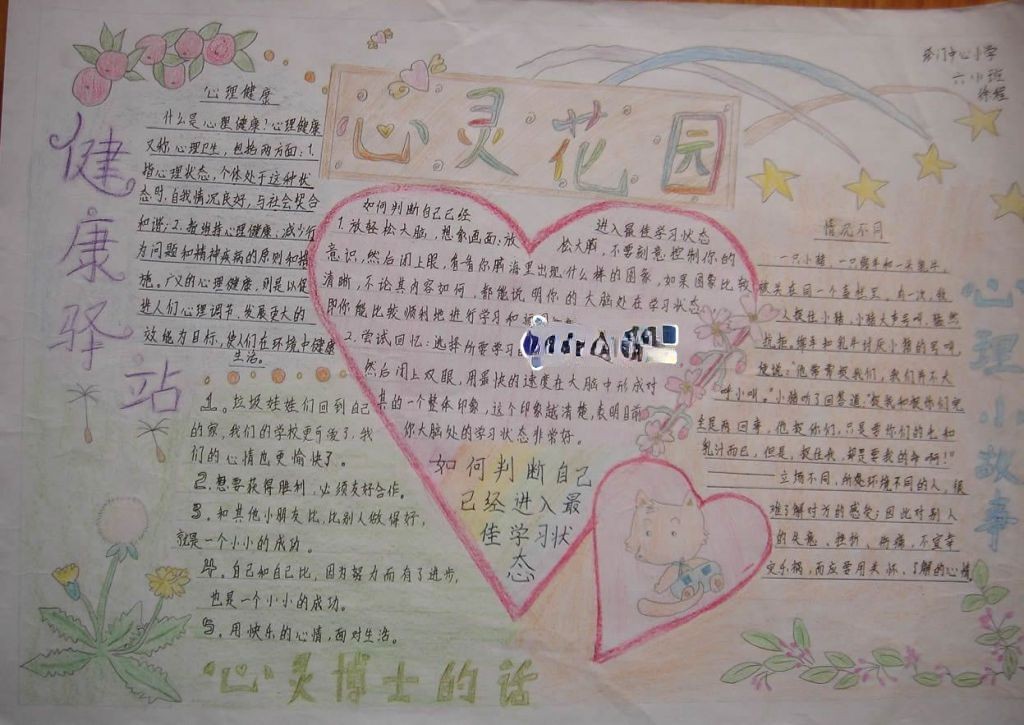 心灵花园
中心小学
六小班
健康驿站
心理健康
什么是心理健康?心理健康
又称心理卫生，包括两方面:1.
指心理状态，个体处于这种状
态时，自我情况良好，与社会契合
和谐;2.指维持心理健康、减少行
为问题和精神疾病的原则和措
施。广义的心理健康，则是以促
进人们心理调节、发展更大的
效能为目标，使人们在环境中健康
生活。
如何判断自己已经
进入最佳学习状态
1.放轻松大脑，想象画面:放
松大脑，不要刻意控制你的
意识，然后闭上眼，看看你脑海里出现什么样的图象，如果图象比较
清晰，不论其内容如何，都能说明你的大脑处在学习状态
即你能比较顺利地进行学习和
2.尝试回忆:选择所要学习
然后闭上双眼，用最快的速度在大脑中形成对
其的一个整体印象，这个印象越清楚，表明目前
你大脑处的学习状态非常好。
如何判断自己
已经进入最
佳学习状
态
1.垃圾娃娃们回到自己
的家，我们的学校更干净了，我
们的心情也更愉快了。
2.想要获得胜利，必须友好合作。
3.和其他小朋友比，比别人做得好，
就是一个小小的成功。
4.自己和自己比，因为努力而有了进步，
也是一个小小的成功。
5.用快乐的心情，面对生活。
心灵博士的话
心理小故事
情况不同
一只小猪、一只绵羊和一头乳牛，
被关在同一个畜栏里。有一次，牧
人捉住小猪，小猪大声号叫，猛烈
抗拒。绵羊和乳牛讨厌小猪的号叫，
便说:他常常捉我们，我们并不大
呼小叫。"小猪听了回答道:"捉我和捉你们完
全是两回事，他捉你们，只是要你们的毛和
乳汁而已，但是，捉住我，却是要我的命啊!"
立场不同，所处环境不同的人，很
难了解对方的感受;因此对别人
的失意、挫折、伤痛，不宜幸
灾乐祸，而应要用关怀、了解的心情